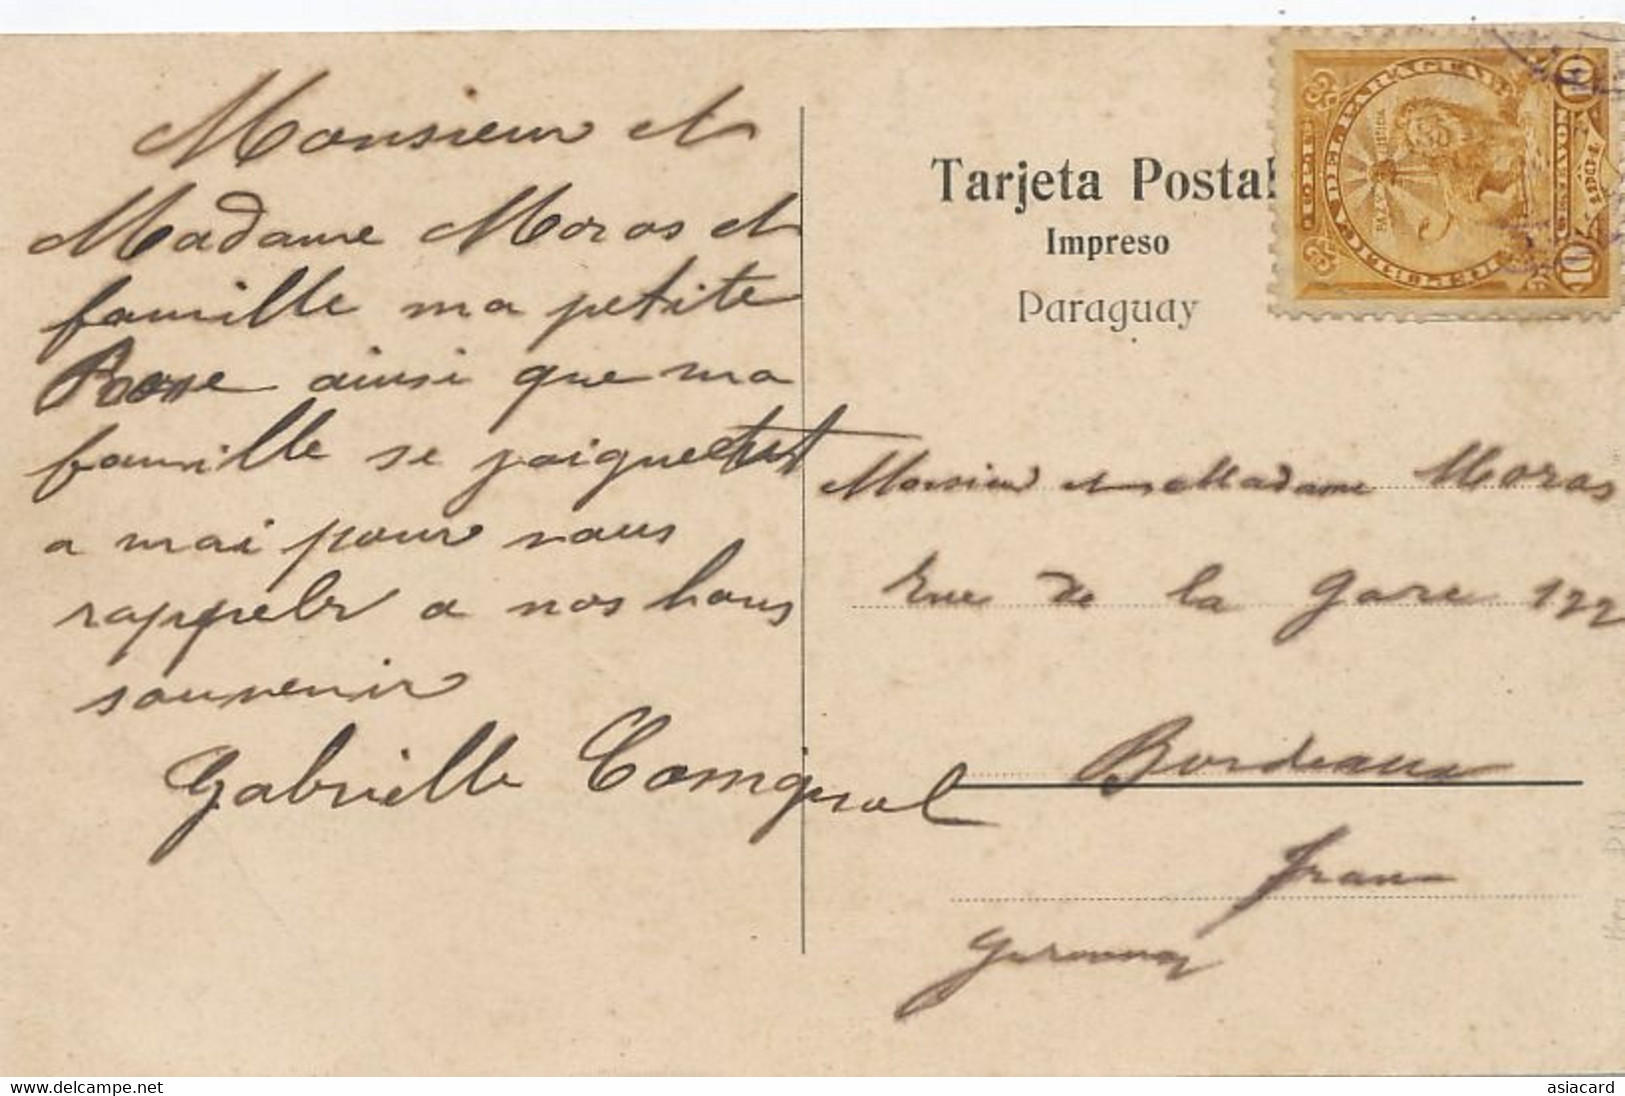 Monsieur et
Madame Moras et
famille ma petite
Rose ainsi que ma
famille se joignent
a moi pour vous
rappeler a nos bons
souvenir
Gabrielle
Tarjeta Postal
Impreso
Paraguay
10 1904 10
CENTAVOS
Monsieur et Madame Moras
Rue de la Gare 122
Bordeaux
delcampe.net
asiacard